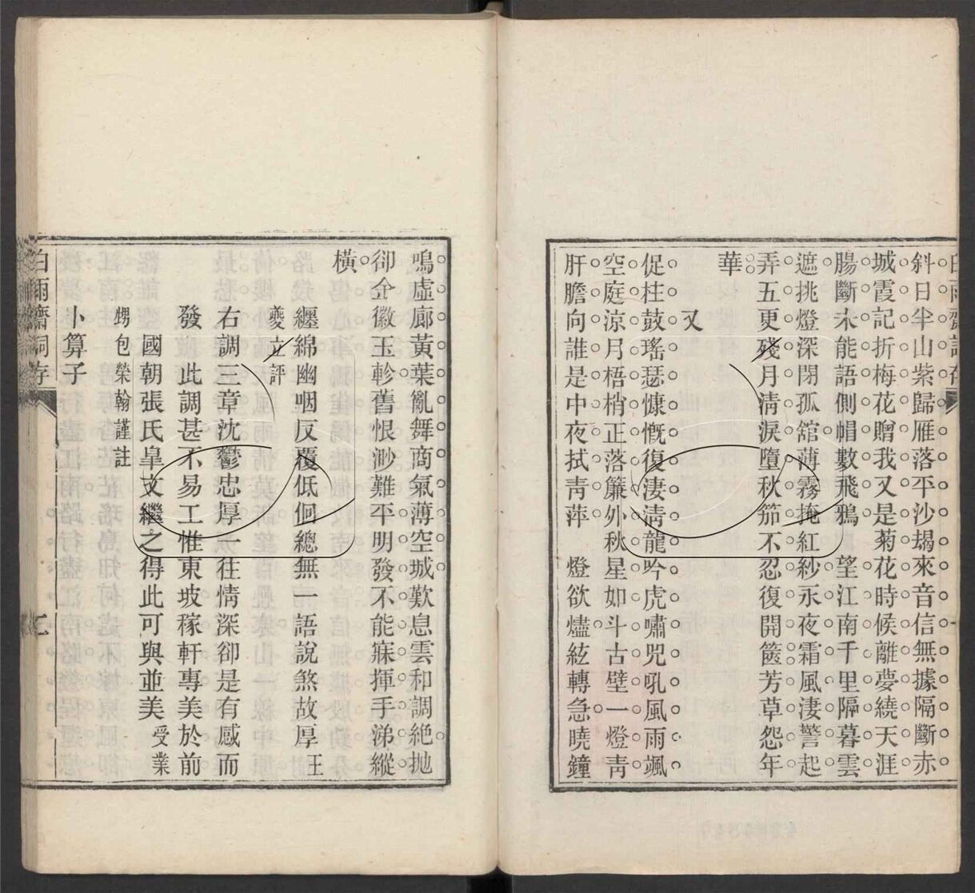 斜日半山紫歸雁落平沙朅來音信無據隔斷赤
城霞記折梅花贈我又是菊花時候離夢繞天涯
腸斷未能語側帽數飛鴉　望江南千里隔暮雲
遮挑燈深閉孤館薄霧掩紅紗永夜霜風淒警起
弄五更殘月清淚墮秋笳不忍復開篋芳草怨年
華
又
促柱鼓瑤瑟慷慨復淒清龍吟虎嘯咒吼風雨颯
空庭涼月梧梢正落簾外秋星如斗古壁一燈青
肝膽向誰是中夜拭青萍　燈欲燼絃轉急曉鐘
鳴虛廊黃葉亂舞商氣薄空城歎息雲和調絕拋
卻金徽玉軫舊恨渺難平明發不能寐揮手涕縱
橫
纏綿幽咽反覆低佪總無一語說煞故厚王
夔立評
右調三章沈鬱忠厚一往情深卻是有感而
發　此調甚不易工惟東坡稼軒專美於前
國朝張氏皐文繼之得此可與並美受業
甥包榮翰謹註
卜算子
白雨齋詞存
七